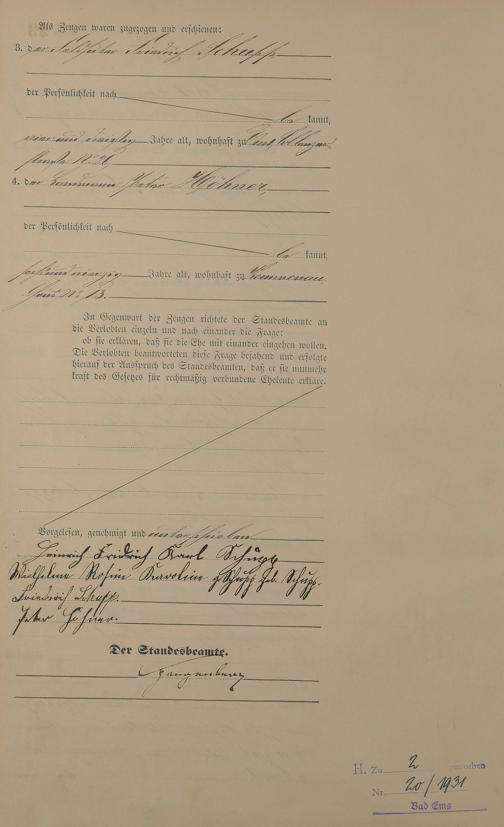 Als Zeugen waren zugezogen und erschienen:
3. der Friedrich Schupp
der Persönlichkeit nach
be kannt,
Jahre alt, wohnhaft zu Ems,
No 26
4. der Peter Höhner,
der Persönlichkeit nach
be kannt,
Jahre alt, wohnhaft zu Kemmenau
Haus No 13.
In Gegenwart der Zeugen richtete der Standesbeamte an
die Verlobten einzeln und nach einander die Frage:
ob sie erklären, daß sie die Ehe mit einander eingehen wollen.
Die Verlobten beantworteten diese Frage bejahend und erfolgte
hierauf der Ausspruch des Standesbeamten, daß er sie nunmehr
kraft des Gesetzes für rechtmäßig verbundene Eheleute erkläre.
Vorgelesen, genehmigt und unterschrieben
Heinrich Fridrich Karl Schupp
Wielhelmine Rosine Karoline Schupp geb. Schupp.
Friedrich Schupp.
Peter Höhner.
Der Standesbeamte.
H. Zu 2
Nr. 20/1931
Bad Ems